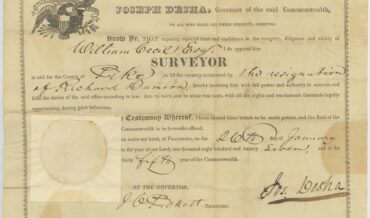 JOSEPH DESHA, Governor of the said Commonwealth,
TO ALL WHO SHALL THESE PRESENTS, GREETING:
Know Ye, THAT reposing special trust and confidence in the integrity, diligence and ability of
William Cecil Esqr. I do appoint him
SURVEYOR
in and for the County of Pike to fill the vacancy occasioned by the resignation
of Richard Damron hereby investing him with full power and authority to execute and
fulfil the duties of the said office according to law: AND TO HAVE AND TO HOLD THE SAME, with all the rights and emoluments thereunto legally
appertaining, during good behaviour.
In Testimony Whereof, I have caused these letters to be made patent, and the Seal of the
Commonwealth to be hereunto affixed.
Given under my hand, at Frankfort, on the 26th day of January
in the year of our Lord, one thousand eight hundred and twenty Seven, and in the
thirty fifth year of the Commonwealth.
BY THE GOVERNOR,
Jos. Desha
J. C. Pickett SECRETARY.